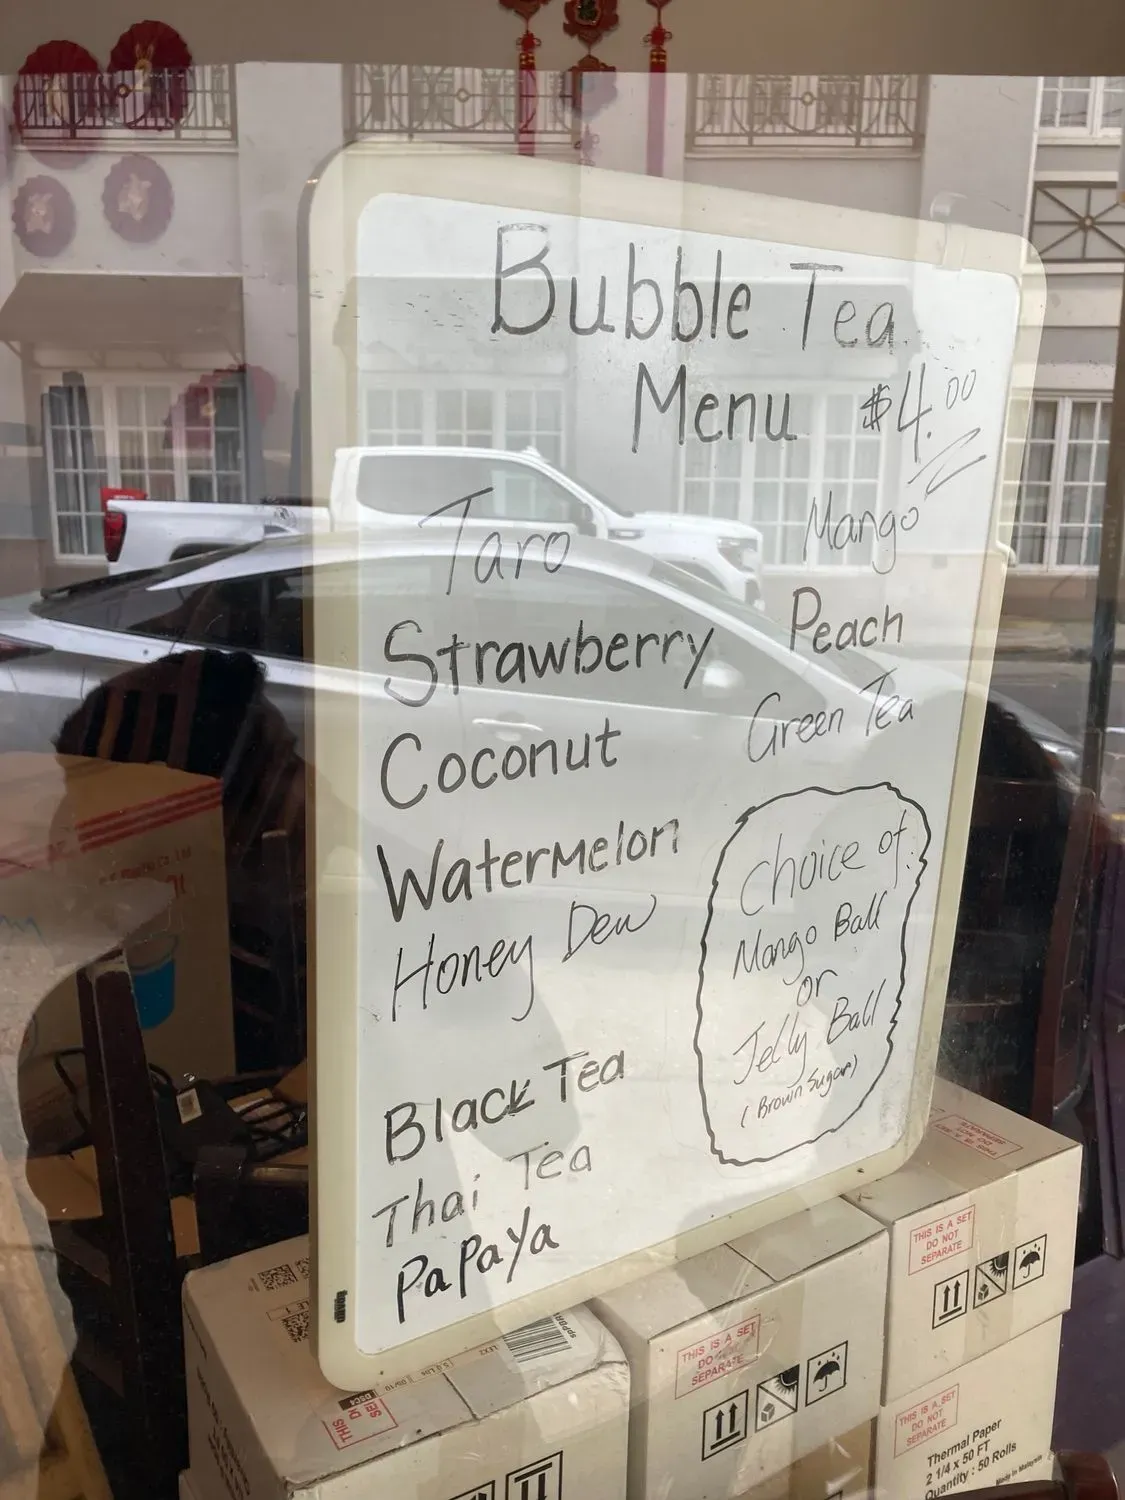 Bubble Tea
Menu $4.00
Taro
Strawberry
Coconut
Watermelon
Honey Dew
Black Tea
Thai Tea
Papaya
Mango
Peach
Green Tea
Choice of:
Mango Ball
or
Jelly Ball
(Brown Sugar)
THIS IS A SET
DO NOT
SEPARATE
THIS IS A SET
DO NOT
SEPARATE
THIS IS A SET
DO NOT
SEPARATE
THIS IS A SET
DO NOT
SEPARATE
Thermal Paper
2 1/4 x 50 FT
Quantity : 50 Rolls
Made in Malaysia